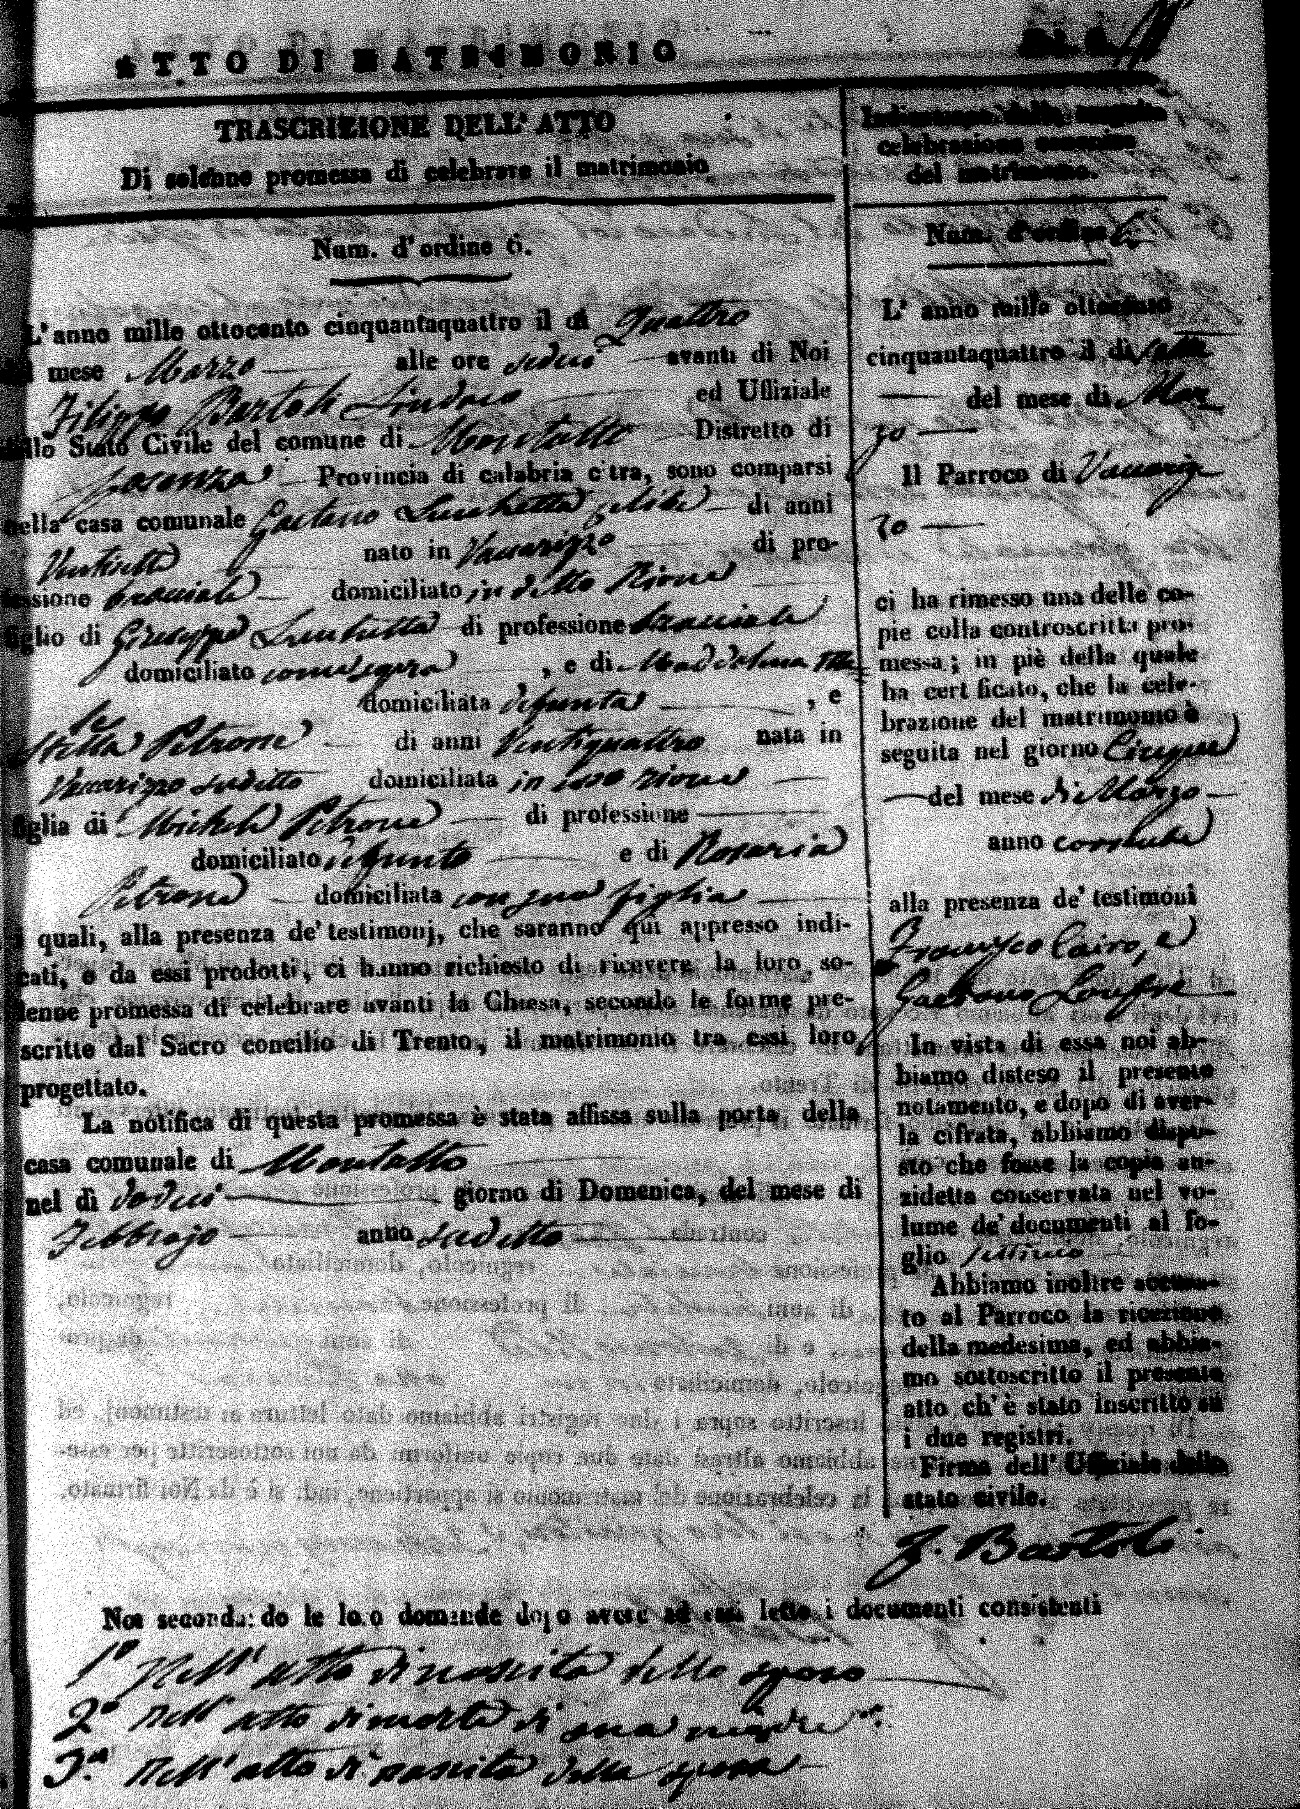 ATTO DI MATRIMONIO
TRASCRIZIONE DELL' ATTO
Di solenne promessa di celebrare il matrimonio
Num. d'ordine 6.
L'anno mille ottocento cinquantaquattro il dì Quattro
mese Marzo alle ore sedici avanti di Noi
Filippo Bartoli Sindaco ed Uffiziale
dello Stato Civile del comune di Montalto Distretto di
Cosenza Provincia di calabria citra, sono comparsi
nella casa comunale Gaetano Lucchetta celibe di anni
Ventisette nato in Vaccarizzo di pro-
fessione bracciale domiciliato in detto Rione
figlio di Giuseppe Lucchetta di professione bracciale
domiciliato come sopra , e di Maddalena
domiciliata defunta , e
Stella Petrone di anni Ventiquattro nata in
Vaccarizzo sudetto domiciliata in esso rione
figlia di Michele Petrone di professione
domiciliato defunto e di Rosaria
Petrone domiciliata con sua figlia
i quali, alla presenza de' testimonj, che saranno qui appresso indi-
cati, e da essi prodotti, ci hanno richiesto di ricevere la loro so-
lenne promessa di celebrare avanti la Chiesa, secondo le forme pre-
scritte dal Sacro concilio di Trento, il matrimonio tra essi loro
progettato.
La notifica di questa promessa è stata affissa sulla porta della
casa comunale di Montalto
nel dì dodici giorno di Domenica, del mese di
Febbrajo anno sudetto
Indicazione della seguita
celebrazione canonica
del matrimonio.
Num. d'ordine 6.
L' anno mille ottocento
cinquantaquattro il dì
del mese di Mar
zo
Il Parroco di Vaccariz
zo
ci ha rimesso una delle co-
pie colla controscritta pro-
messa; in piè della quale
ha certificato, che la cele-
brazione del matrimonio è
seguita nel giorno Cinque
del mese di Marzo
anno corrente
alla presenza de' testimoni
Francesco Cairo, e
Gaetano
In vista di essa noi ab-
biamo disteso il presente
notamento, e dopo di aver-
la cifrata, abbiamo dispo-
sto che fosse la copia an-
zidetta conservata nel vo-
lume de' documenti al fo-
glio settimo
Abbiamo inoltre accusa-
to al Parroco la ricezione
della medesima, ed abbia-
mo sottoscritto il presente
atto ch' è stato inscritto su
i due registri.
Firma dell' Uffiziale dello
stato civile.
F. Bartoli
Noi secondando le loro domande dopo avere ad essi letto i documenti consistenti
1° Nell' atto di nascita dello sposo
2° Nell' atto di morte di sua madre
3° Nell' atto di nascita della sposa